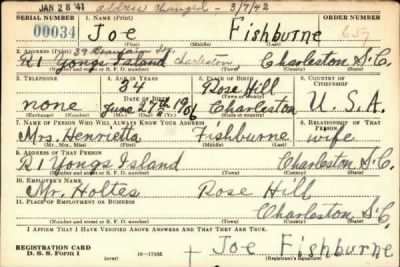 JAN 28 '41 address changed - 3/7/42
SERIAL NUMBER 1. NAME (Print) ORDER NUMBER
00034 Joe Fishburne 657
(First) (Middle) (Last)
2. ADDRESS (Print) 39
R 1 Yongs Island Charleston, Charleston S.C.
(Number and street or R. F. D. number) (Town) (County) (State)
3. TELEPHONE 4. AGE IN YEARS 5. PLACE OF BIRTH 6. COUNTRY OF CITIZENSHIP
34 Rose Hill
none DATE OF BIRTH June 27th 1906 Charleston U.S.A.
(Exchange) (Number) (Mo.) (Day) (Yr.) (State or country)
7. NAME OF PERSON WHO WILL ALWAYS KNOW YOUR ADDRESS 8. RELATIONSHIP OF THAT PERSON
Mrs. Henrietta Fishburne wife
(Mr., Mrs., Miss) (First) (Middle) (Last)
9. ADDRESS OF THAT PERSON
R 1 Yongs Island Charleston S.C.
(Number and street or R. F. D. number) (Town) (County) (State)
10. EMPLOYER'S NAME
Mr. Holtes Rose Hill
11. PLACE OF EMPLOYMENT OR BUSINESS
Charleston, S.C.
(Number and street or R. F. D. number) (Town) (County) (State)
I AFFIRM THAT I HAVE VERIFIED ABOVE ANSWERS AND THAT THEY ARE TRUE.
REGISTRATION CARD
D. S. S. Form 1 16-17105 + Joe Fishburne
(over) (Registrant's signature)